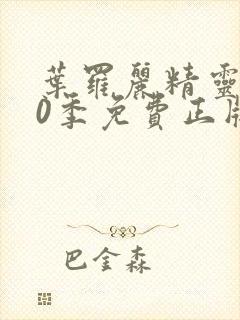 葉羅麗精靈
0季免費正版
巴金森